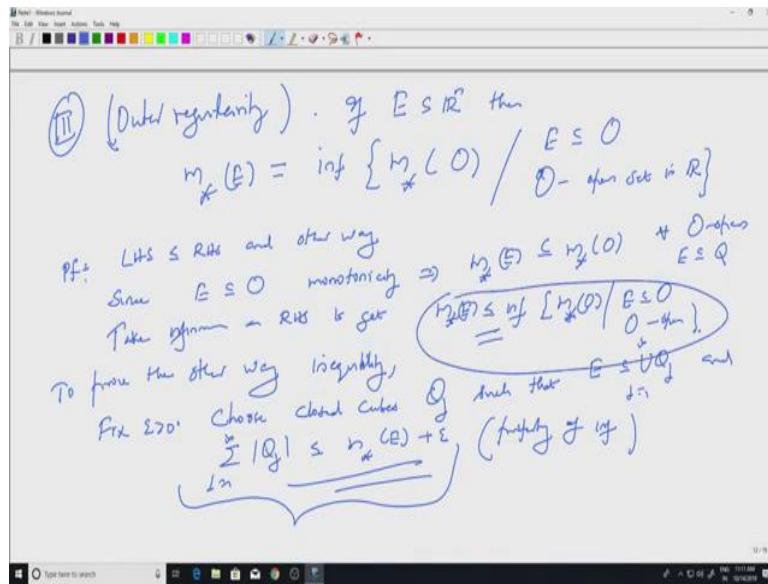 Note1 - Windows Journal
File Edit View Insert Actions Tools Help
B I
III (Outer regularity). If E ⊆ ℝⁿ then
m_*(E) = inf { m_*(O) / E ⊆ O
O - open set in ℝ }
Pf: LHS ≤ RHS and other way
Since E ⊆ O monotonicity ⇒ m_*(E) ≤ m_*(O) ∀ O-open
E ⊆ O
Take infimum on RHS to get m_*(E) ≤ inf { m_*(O) / E ⊆ O
O - open }.
To prove the other way inequality,
Fix ε>0. Choose closed cubes Q_j such that E ⊆ ∪ Q_j and
j=1
∞
Σ |Q_j| ≤ m_*(E) + ε (property of inf)
j=1
Type here to search
ENG
IN
11:11 AM
10/14/2019